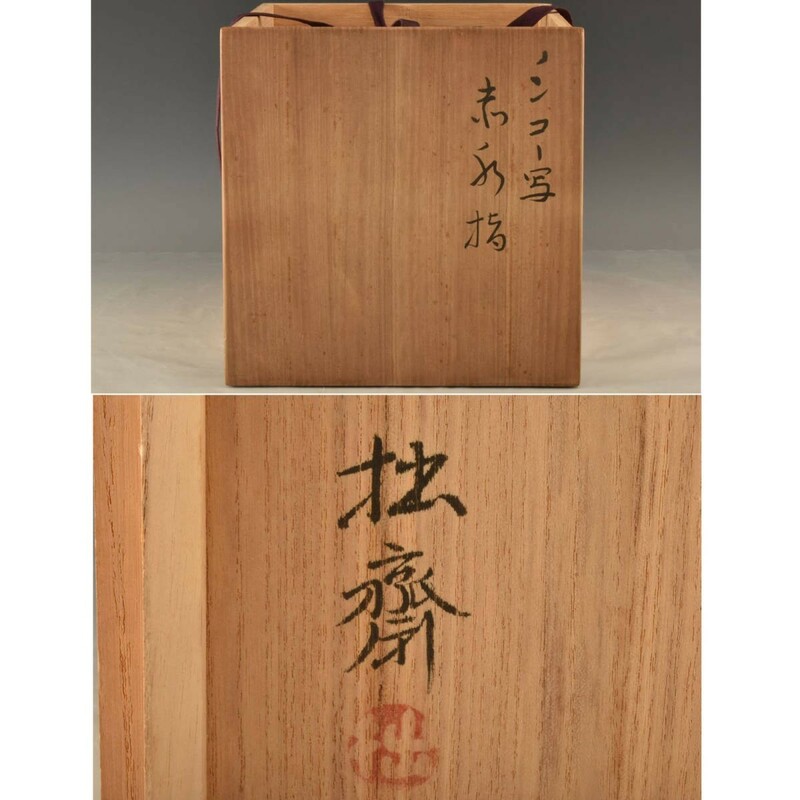 ノンコー写
赤水指
拙齋